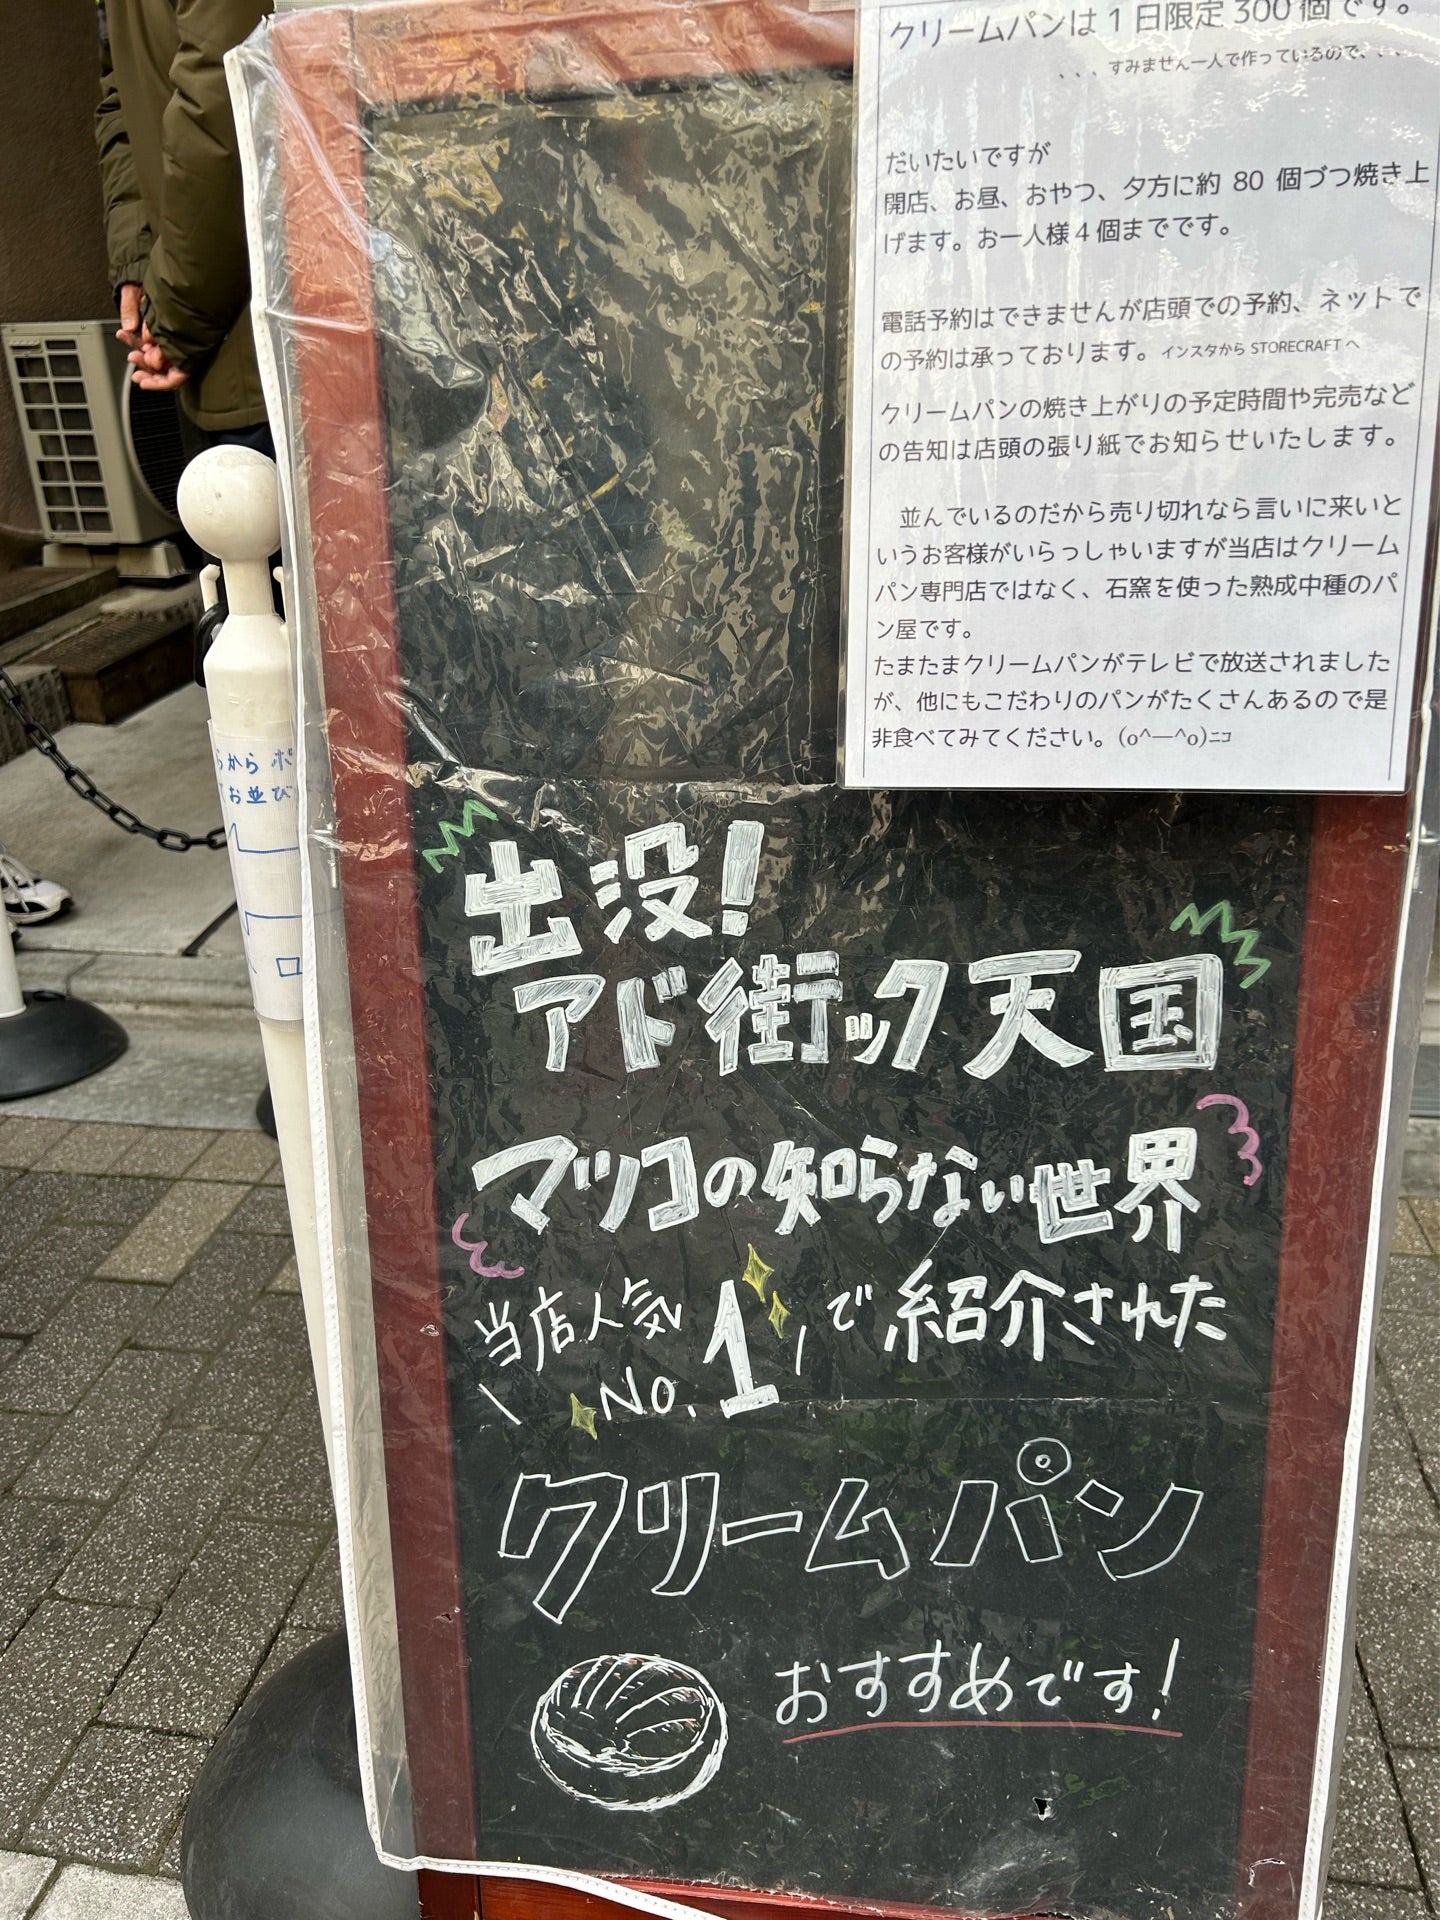 クリームパンは1日限定300個です。
、、、すみません一人で作っているので、、、
だいたいですが
開店、お昼、おやつ、夕方に約 80 個づつ焼き上
げます。お一人様4個までです。
電話予約はできませんが店頭での予約、ネットで
の予約は承っております。インスタから STORECRAFT へ
クリームパンの焼き上がりの予定時間や完売など
の告知は店頭の張り紙でお知らせいたします。
並んでいるのだから売り切れなら言いに来いと
いうお客様がいらっしゃいますが当店はクリーム
パン専門店ではなく、石窯を使った熟成中種のパ
ン屋です。
たまたまクリームパンがテレビで放送されました
が、他にもこだわりのパンがたくさんあるので是
非食べてみてください。(o^―^o)ﾆｺ
出没!
アド街ック天国
マツコの知らない世界
当店人気
No.1で紹介された
クリームパン
おすすめです!
からボ
お並び